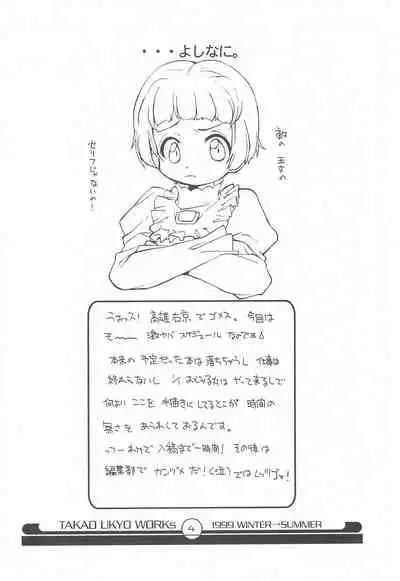 ・・・よしなに。
敵の 王女の
セリフじゃないの!
うおっス! 高雄右京 でゴメス。今回は
も〜〜 激ヤバスケジュール なのです
本来の 予定だった本は落ちちゃうし 仕事は
終わらないし
やって来るしで
何よりここを 手描きに してるとこが 時間の
無さを あらわしておるんです。
っつーわけで 入稿まで一時間! その後は
編集部で カンヅメ だ!(泣) ではレッツゴォ!
TAKAO UKYO WORKs 4 1999 WINTER→SUMMER